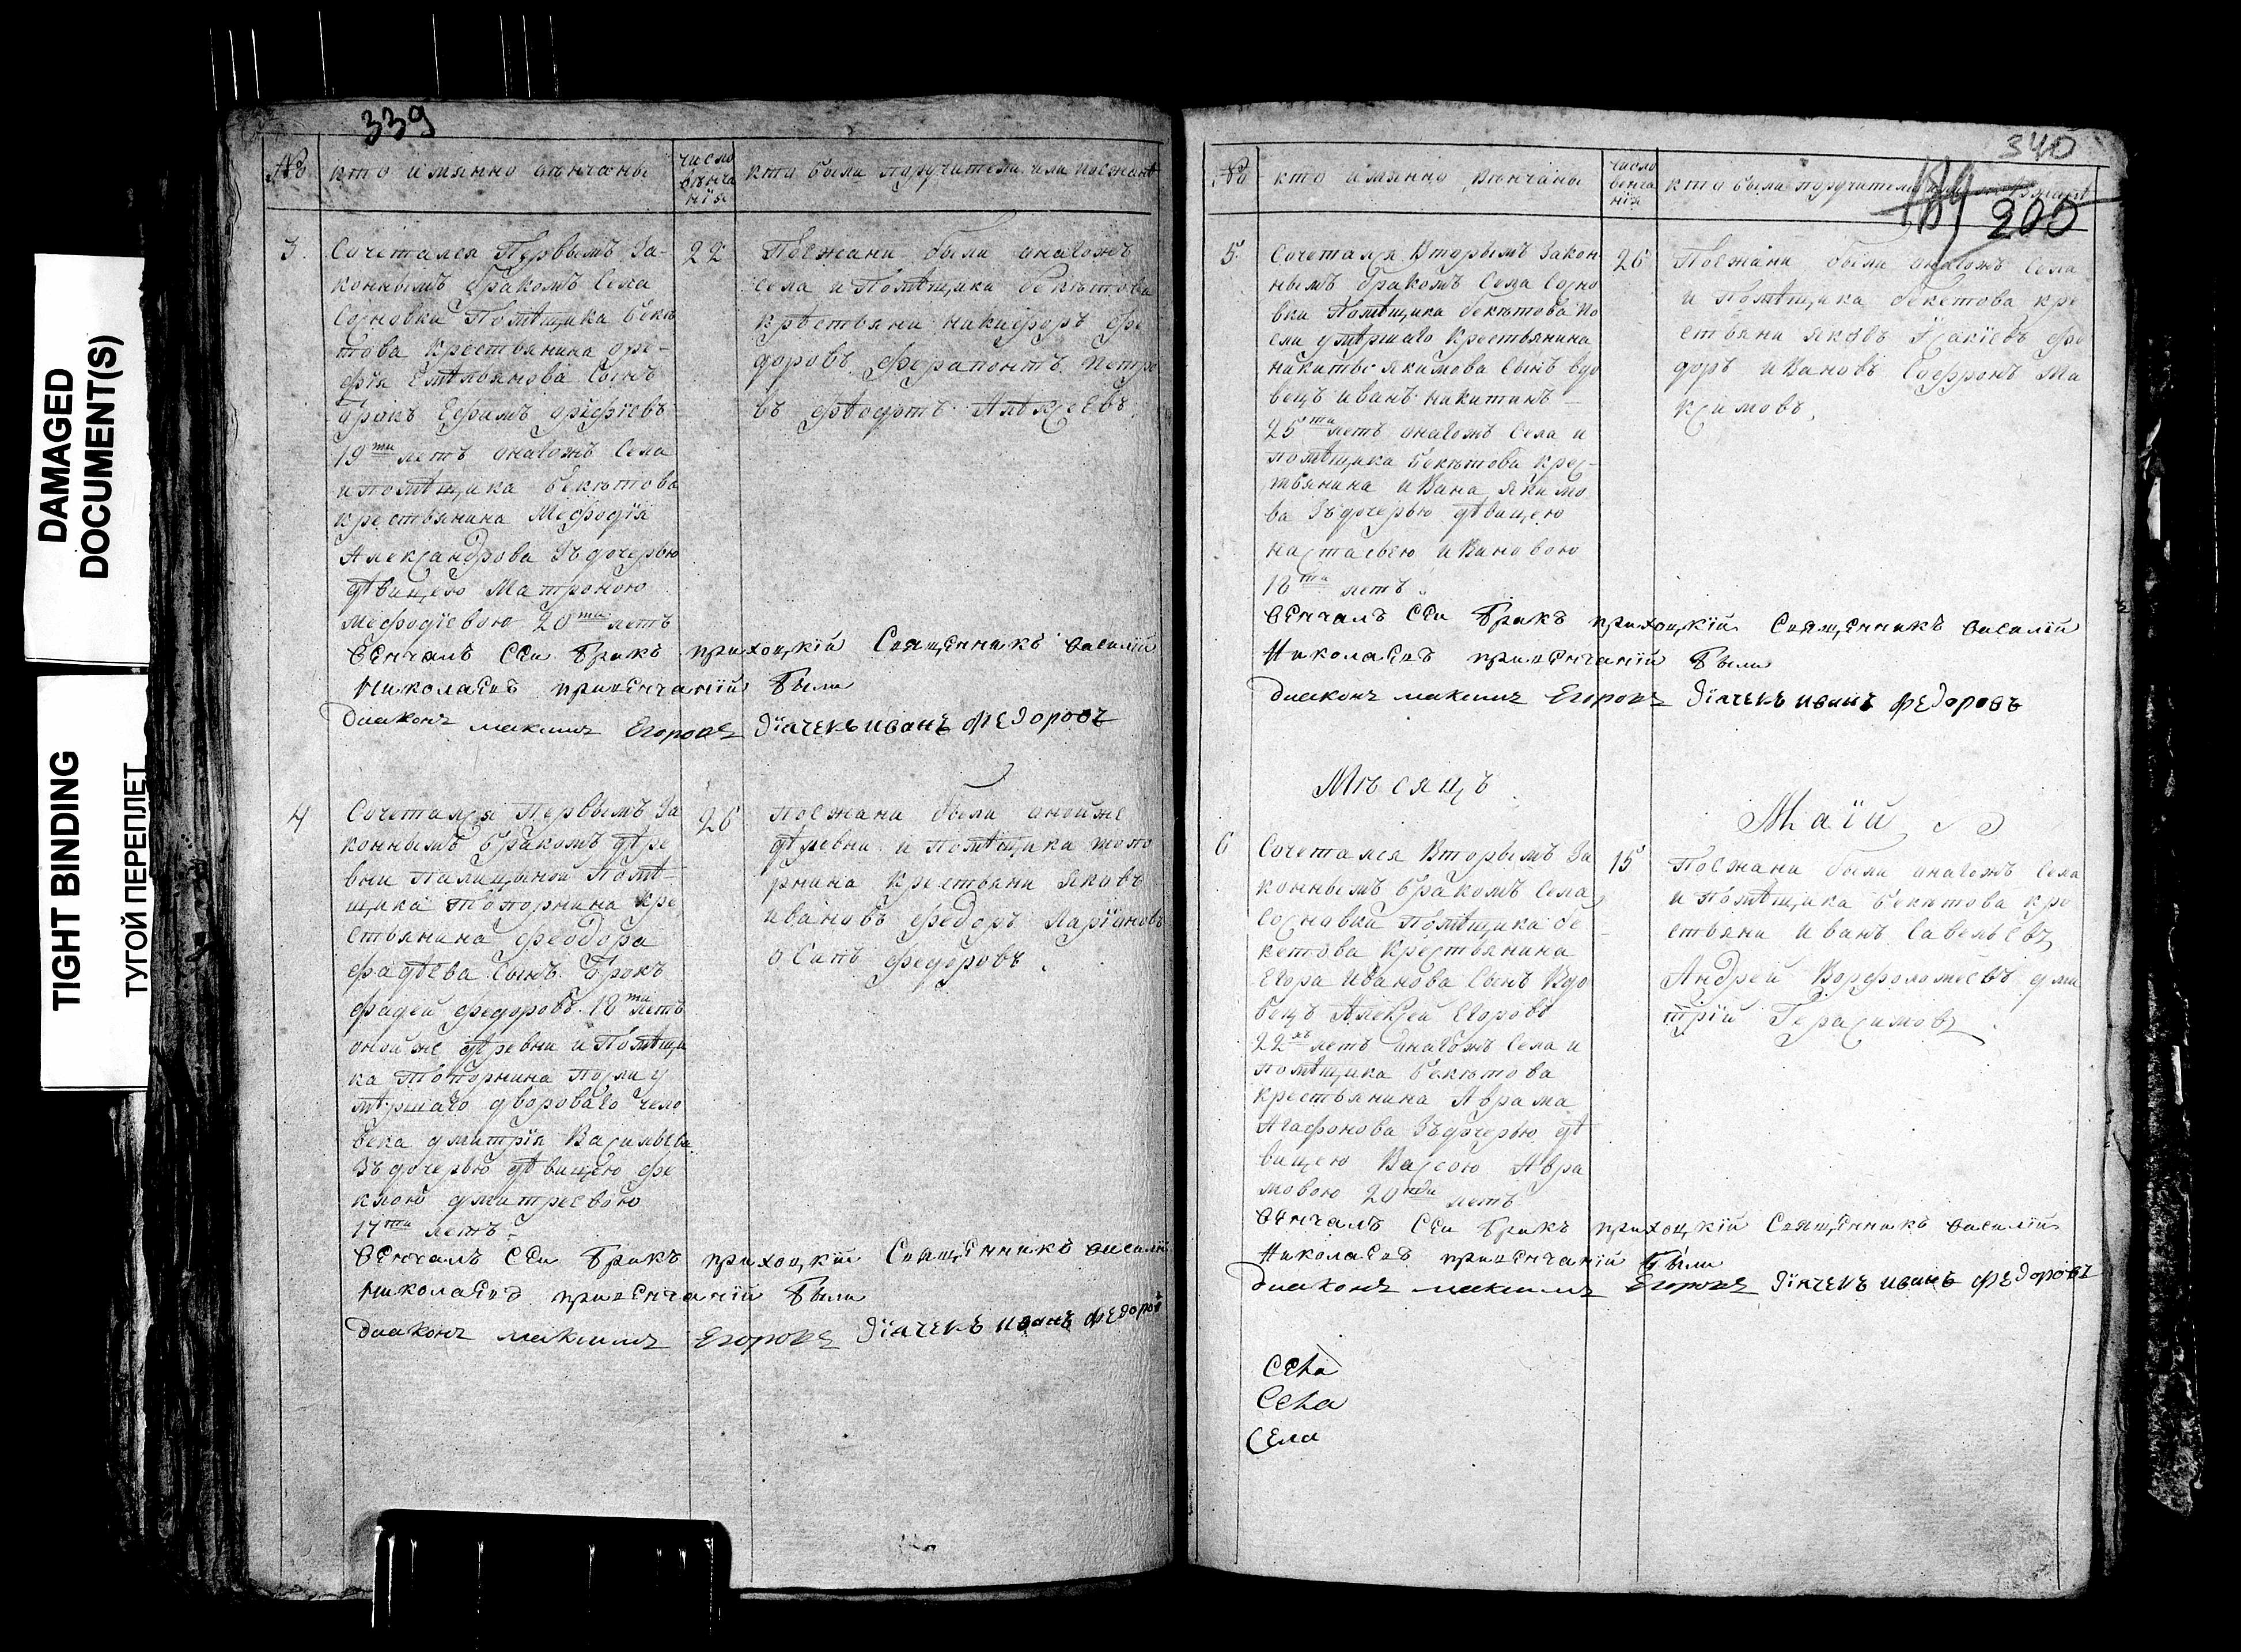 DAMAGED
DOCUMENT(S)
TIGHT BINDING
ТУГОЙ ПЕРЕПЛЕТ
339
№
кто имянно венчаны
число
венча
нїя
кто были поручители или поезжане
3.
Сочетался Первымъ За-
коннымъ бракомъ Села
Сосновки Помѣщика беке
това крестьянина оре-
фїя Емѣльянова Сынъ
отрокъ Ефимъ орефїевъ
19ти летъ онагожъ Села
и помѣщика бекетова
крестьянина Мефодїя
Александрова Зъ дочерью
дѣвицею Матроною
мефодїевою 20ти летъ
22
Поежани были онагожъ
села и Помѣщика бекетова
крестьяни никифоръ фе
доровъ ферапонтъ петро
въ федотъ Алексеевъ
венчалъ сеи бракъ прихоцкїй священникъ василїй
николаевъ привенчанїи были
диаконъ максимъ Егоровъ дїячекъ иванъ федоровъ
4
Сочетался первымъ За
коннымъ бракомъ дѣре
вни палицыной помѣ
щика топорнина кре
стьянина феодора
фадѣева сынъ отрокъ
фадей федоровъ 18ти летъ
онойже дѣревни и Помѣщи
ка топорнина после у
мѣршаго двороваго чело
века дмитрїя Васильева
Зъ дочерью дѣвицею фе
клою дмитреевою
17ти летъ
26
поежана были онойже
дѣревни и помѣщика топо
рнина крестьяни яковъ
ивановъ федоръ Ларїоновъ
осипъ федоровъ
венчалъ сеи бракъ прихоцкїй священникъ василїй
николаевъ привенчанїи были
диаконъ максимъ Егоровъ дїячекъ иванъ федоровъ
340
№
кто имянно венчаны
число
венча
нїя
кто были поручители
200
5
Сочетался Вторымъ Закон
нымъ бракомъ Села Сосно
вки Помѣщика бекетова по
сли умѣршаго крестьянина
никиты якимова сынъ вдо
вецъ иванъ никитинъ
25ти летъ онагожъ Села и
помѣщика бекетова крес-
тьянина ивана якимо
ва Зъ дочерью дѣвицею
настасьею ивановою
18ти летъ
26
Поежани были онагожъ села
и помѣщика бекетова кре
стьяни яковъ Исакїевъ фе
доръ ивановъ Софронъ Ма
ксимовъ
венчалъ сеи бракъ прихоцкїй священникъ василїй
николаевъ привенчанїи были
диаконъ максимъ Егоровъ дїячекъ иванъ федоровъ
Мѣсяцъ
Маїй
6
Сочетался Вторымъ За
коннымъ бракомъ Села
Сосновки помѣщика бе
кетова крестьянина
Егора иванова сынъ Вдо
вецъ Алексей Егоровъ
22хъ летъ онагожъ Села и
помѣщика бекетова
крестьянина Аврама
Агафонова Зъ дочерью дѣ
вицею Вассою Авра
мовою 20ти летъ
15
Поежани были онагожъ села
и помѣщика бекетова кре
стьяни иванъ савельевъ
Андрей Ворфоломеевъ дми
трїй Герасимовъ
венчалъ сеи бракъ прихоцкїй священникъ василїй
николаевъ привенчанїи были
диаконъ максимъ Егоровъ дїячекъ иванъ федоровъ
села
села
села